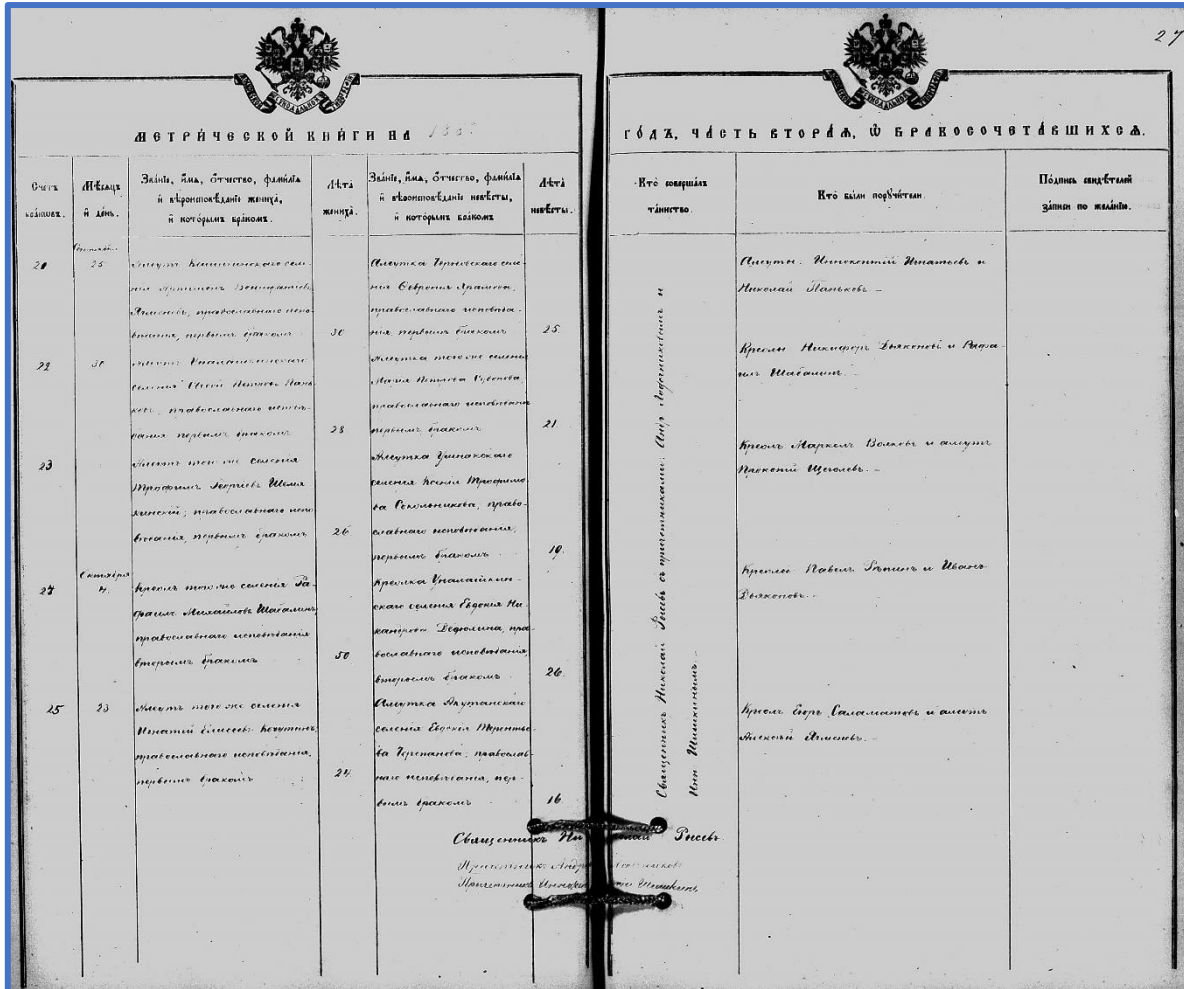 27
МЕТРИ́ЧЕСКОЙ КНИ́ГИ НА 188
ГО́ДЪ, ЧА́СТЬ ВТОРА́Я, Ѡ БРАКОСОЧЕТА́ВШИХСЯ.
Счетъ браковъ.
Мѣсяцъ и день.
Зва́нїе, и́мя, о́тчество, фами́лїя
и вѣроисповѣ́данїе жениха̀,
и кото́рымъ бра́комъ.
Лѣта̀ жениха̀.
Зва́нїе, и́мя, о́тчество, фами́лїя
и вѣроисповѣ́данїе невѣ́сты,
и кото́рымъ бра́комъ.
Лѣта̀ невѣ́сты.
Кто̀ соверша́лъ
та́инство.
Кто̀ бы́ли поручи́тели.
По́дпись свидѣ́телей
за́писи по жела́нїю.
25
православнаго испо-
вѣданія, первымъ бракомъ
30
Алеутка
селе-
нія Февронія
православнаго исповѣда-
нія первымъ бракомъ
25
Алеуты: Иннокентій Игнатьевъ и
Николай Паньковъ –
22
30
Алеутъ Уналашкинскаго
селенія Петровъ Пань-
ковъ, православнаго исповѣ-
данія первымъ бракомъ
28
Алеутка того же селенія
Марія Петрова
православнаго исповѣданія
первымъ бракомъ
21
Креолы Никифоръ Дьяконовъ и Рафа-
илъ Шабалинъ –
23
Алеутъ того же селенія
Трофимъ Георгіевъ Шемя
кинскій; православнаго испо
вѣданія, первымъ бракомъ
26
Алеутка
селенія Ксенія Трофимо
ва Сокольникова, право-
славнаго исповѣданія,
первымъ бракомъ
19.
Креолъ Маркелъ Волковъ и алеутъ
Прокопій Щеголевъ. –
Октября
4.
Креолъ того же селенія Ра-
фаилъ Михайловъ Шабалинъ
православнаго исповѣданія
вторымъ бракомъ
50
Креолка Уналашкин-
скаго селенія Евдокія Ни-
кандрова Дедюлина, пра-
вославнаго исповѣданія,
вторымъ бракомъ
26.
Креолы Павелъ Рѣпинъ и Иванъ
Дьяконовъ. –
25
23
Алеутъ того же селенія
Игнатій Елисеевъ
православнаго исповѣданія,
первымъ бракомъ
24.
Алеутка Акутанскаго
селенія Евдокія Терентье-
ва Черепанова; православ-
наго исповѣданія, пер-
вымъ бракомъ
16.
Креолъ Саламатовъ и алеутъ
Алексѣй Ячменевъ. –
Священникъ Николай Рысевъ съ причетниками: и
Шишкинымъ. –
Священникъ Рысевъ
Причетникъ
Причетникъ Шишкинъ